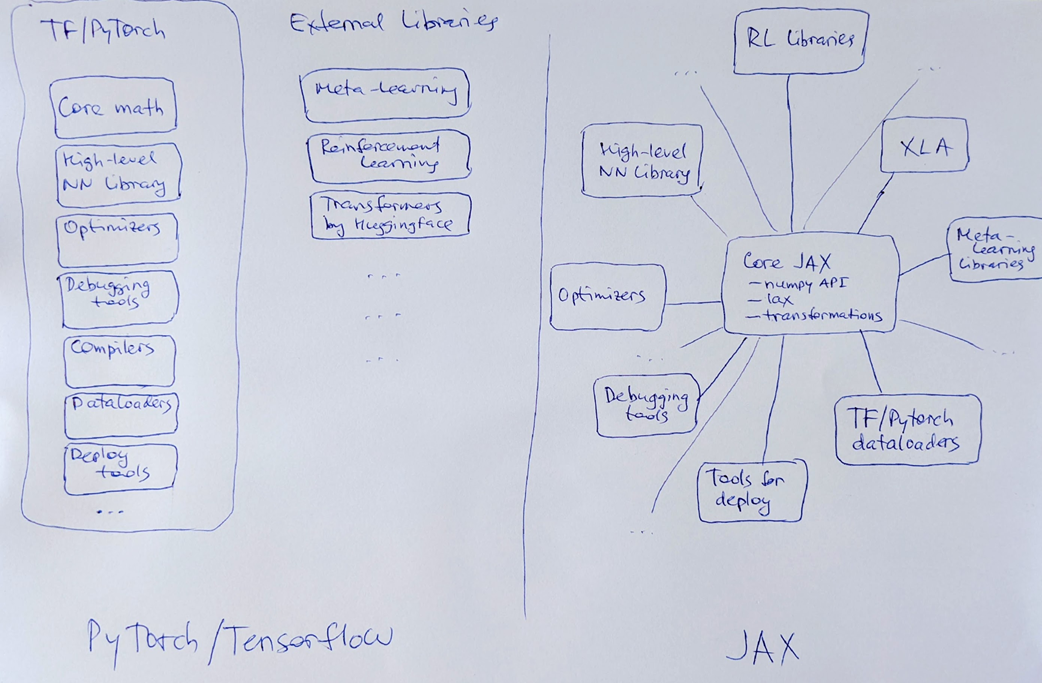 TF/PyTorch
Core math
High-level
NN Library
Optimizers
Debugging
tools
Compilers
Dataloaders
Deploy
tools
...
External Libraries
Meta-learning
Reinforcement
Learning
Transformers
by Huggingface
...
...
...
PyTorch/Tensorflow
RL Libraries
...
...
High-level
NN Library
XLA
Meta-
Learning
Libraries
Core JAX
- numpy API
- lax
- transformations
Optimizers
...
...
Debugging
tools
TF/Pytorch
dataloaders
Tools for
deploy
...
JAX